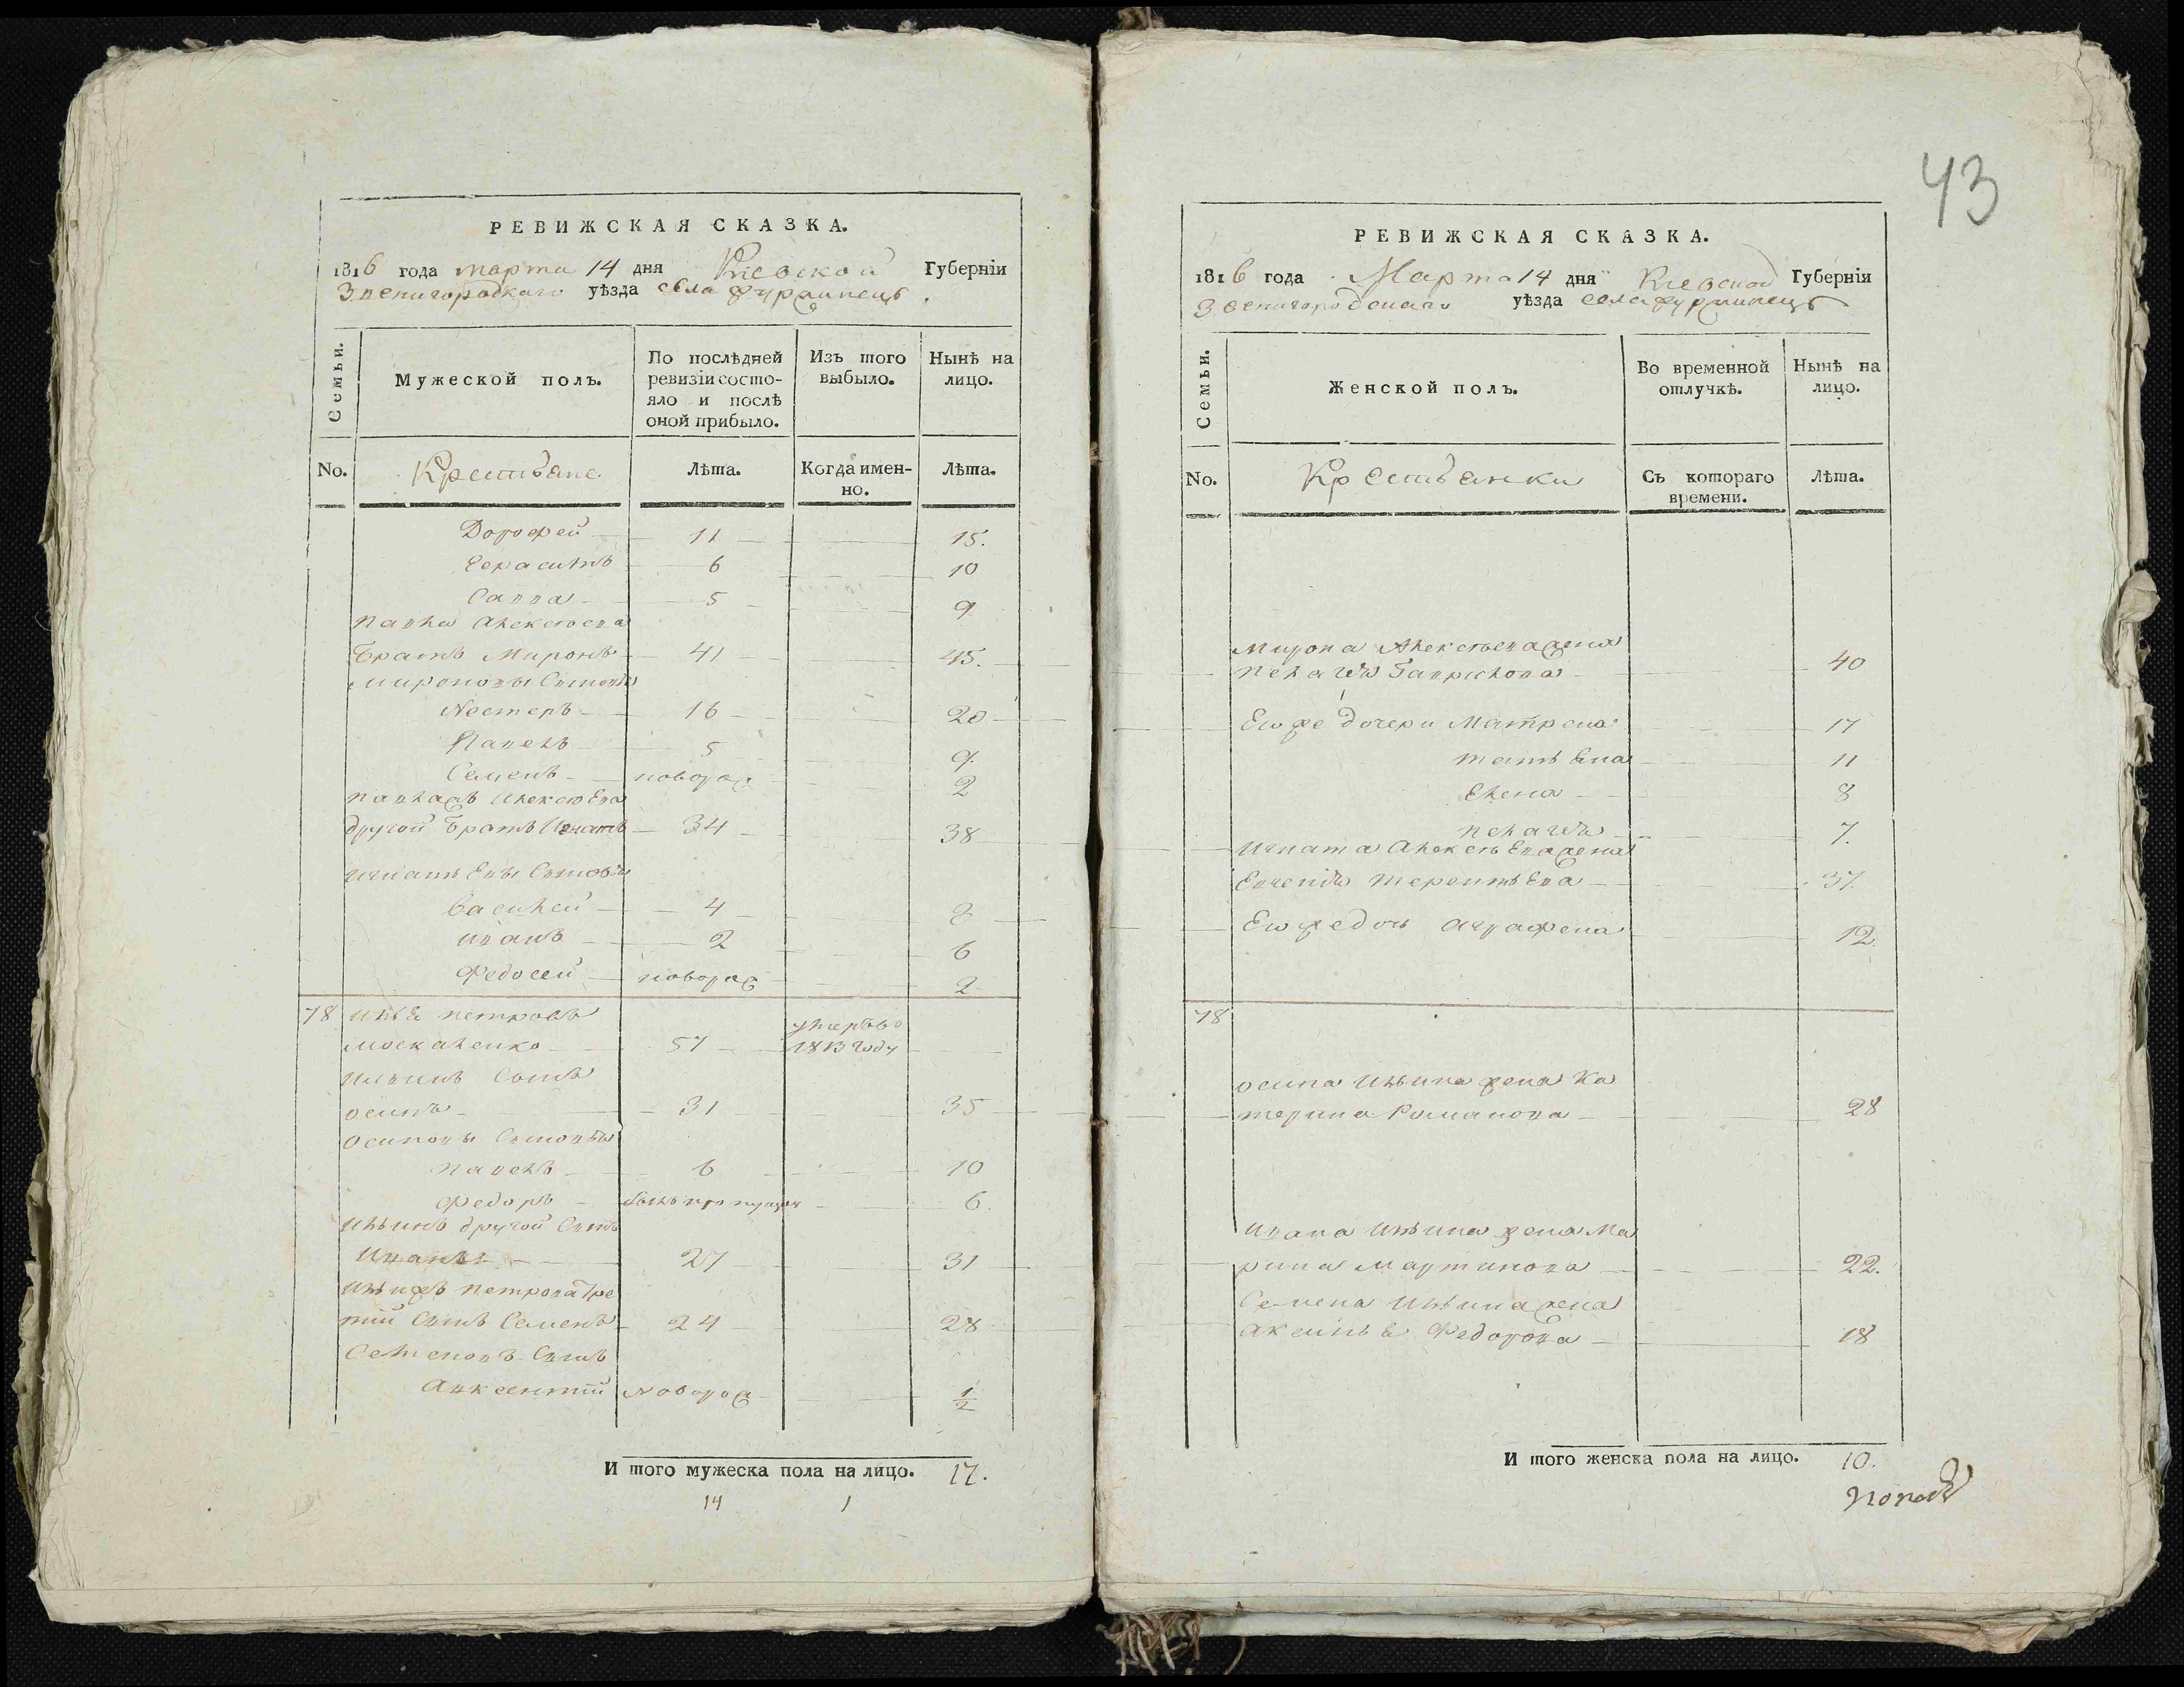 РЕВИЖСКАЯ СКАЗКА.
1816 года марта 14 дня Киевской Губерніи
Звенигородкаго уѣзда села
Семьи.
Мужеской полъ.
По послѣдней ревизіи состо-
яло и послѣ
оной прибыло.
Изъ того выбыло.
Нынѣ на лицо.
No.
Крестьяне
Лѣта.
Когда имен-
но.
Лѣта.
Дорофей 11 15.
Герасимъ 6 10
Савва 5 9
Павла Алексѣева
Братъ Миронъ 41 45.
Мироновы Сыновья
Нестеръ 16 20
Павелъ 5 9.
Семенъ новорож 2
Алексѣева
другой Братъ Игнатъ 34 38
Игнатьевы Сыновья
Василей 4 8
Иванъ 2 6
Федосей новорож 2
78 Илья Петровъ
Москаленко 57 умеръ во
1813 Году
Ильинъ Сынъ
осипъ 31 35
осиповы Сыновья
Павелъ 6 10
Федоръ былъ пропущен 6.
Ильинъ другой Сынъ
Иванъ 27 31
Петрова Тре
тій Сынъ Семенъ 24 28
Семеновъ Сынъ
Авксентій Новорож 1/2
И того мужеска пола на лицо. 17.
14 1
43
РЕВИЖСКАЯ СКАЗКА.
1816 года Марта 14 дня Киевской Губерніи
Звенигородскаго уѣзда села
Семьи.
Женской полъ.
Во временной
отлучкѣ.
Нынѣ на
лицо.
No.
Крестьянки
Съ котораго
времени.
Лѣта.
Мирона Алексѣева жена
Пелагѣя Гаврилова 40
Его же дочери Матрена 17
татьяна 11
Елена 8
Пелагѣя 7.
Игната Алексѣева жена
Евгенія Терентьева 37.
Его же дочь Аграфена 12.
78
осипа Ильина жена Ка
терина Романова 28
Ивана Ильина жена Ма
рина Мартинова 22.
Семена Ильина жена
Аксинья Федорова 18
И того женска пола на лицо. 10.